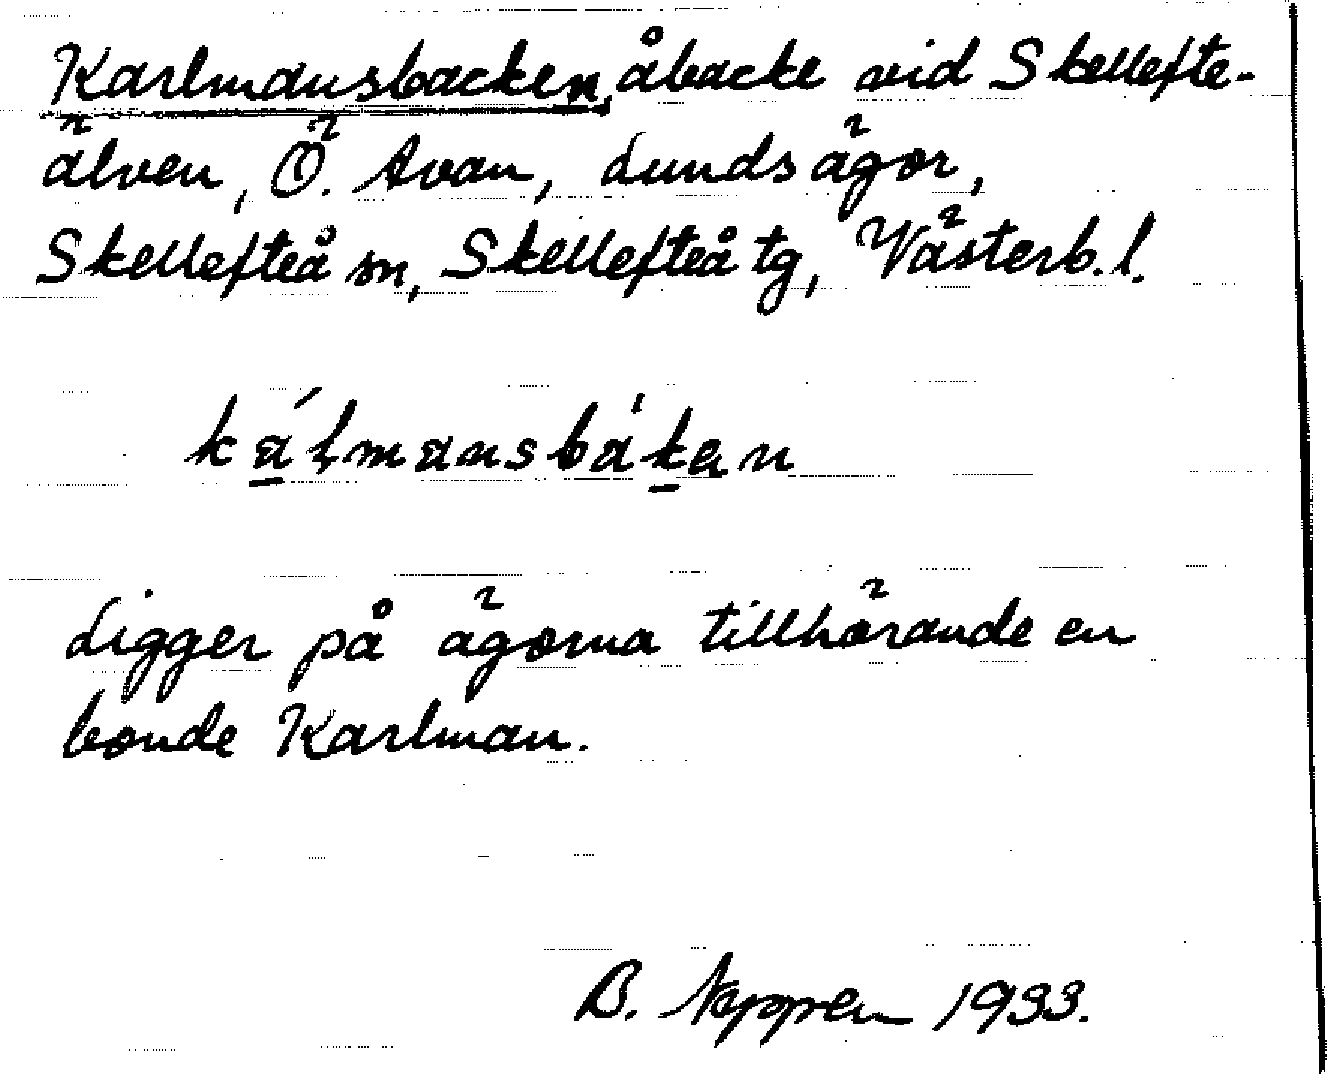 Karlmansbacken, åbacke vid Skellefte-
älven, Ö. Avan, Lunds ägor,
Skellefteå sn, Skellefteå tg, Västerb. l.
Ligger på ägorna tillhörande en
bonde Karlman.
B. 1933.